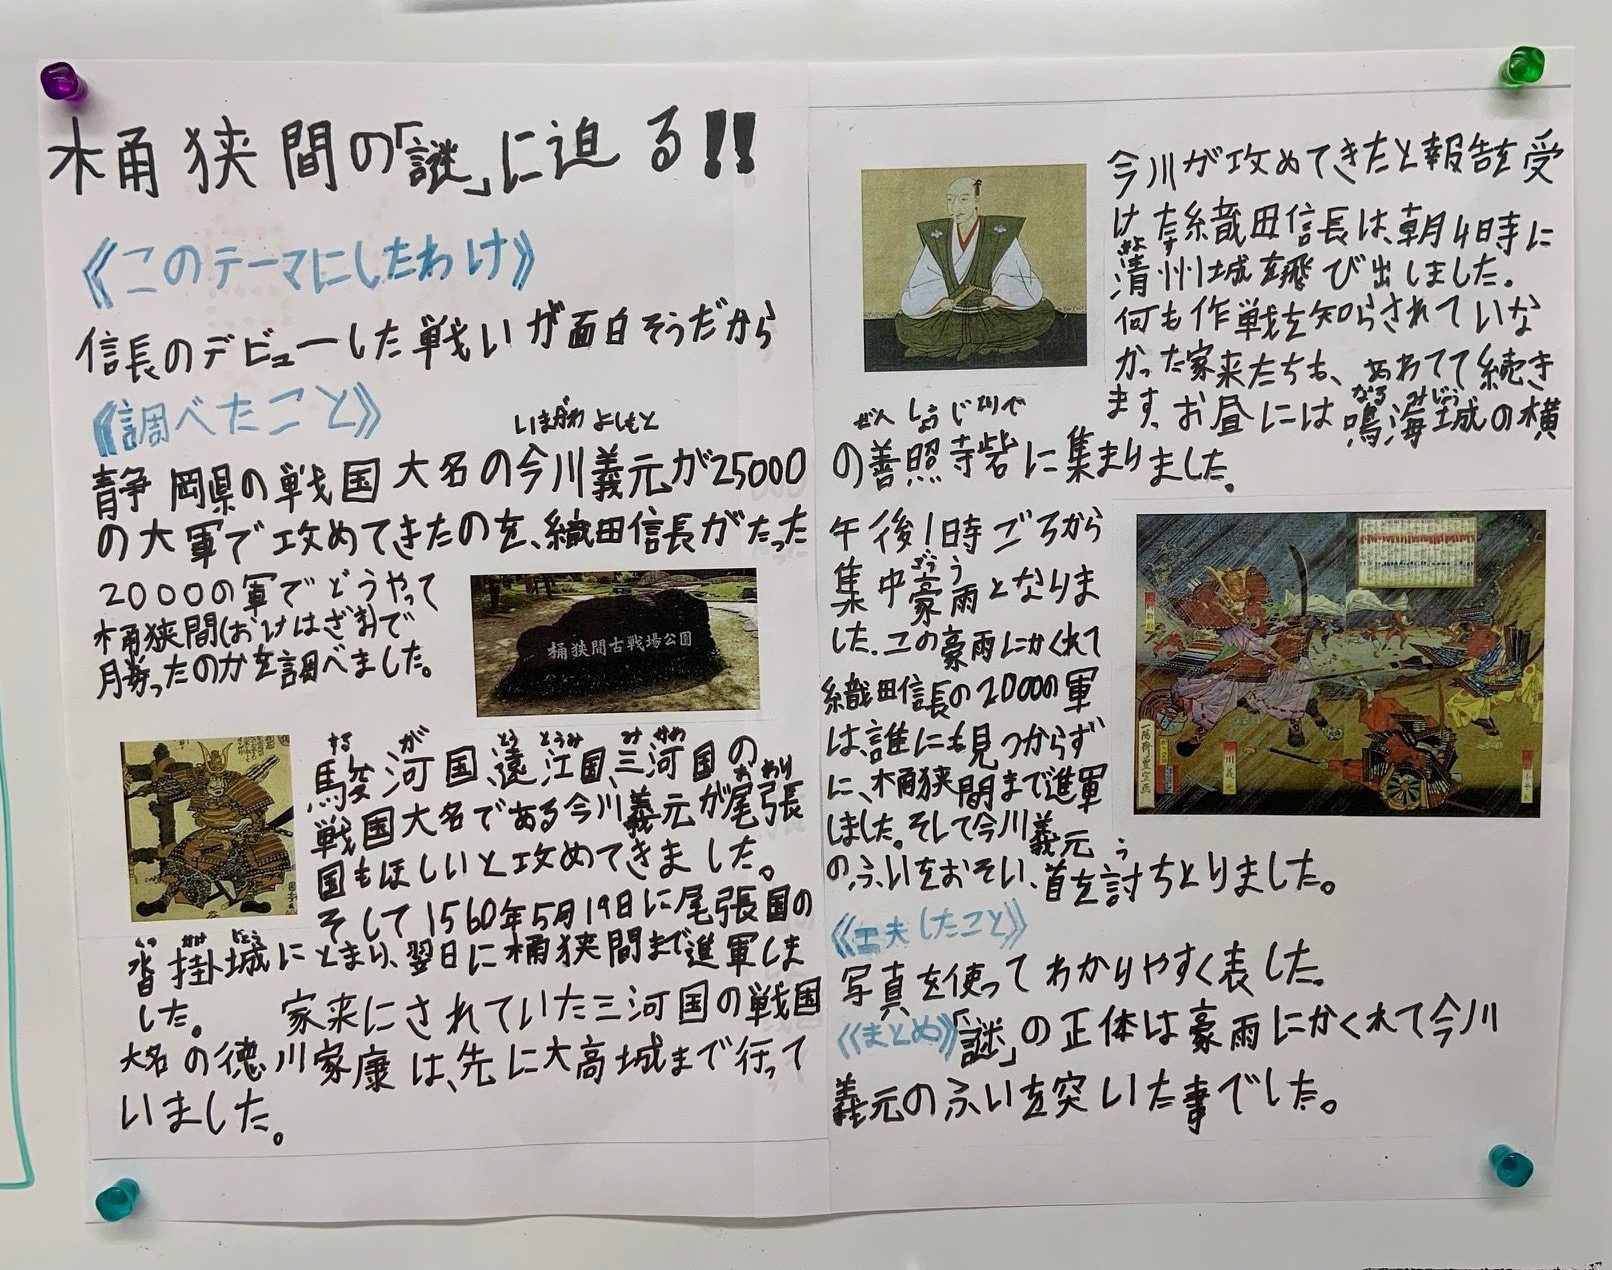 桶狭間の「謎」に迫る!!
《このテーマにしたわけ》
信長のデビューした戦いが面白そうだから
《調べたこと》
いまがわ よしもと
静岡県の戦国大名の今川義元が25000
の大軍で攻めてきたのを、織田信長がたった
2000の軍でどうやって
桶狭間(おけはざま)で
勝ったのかを調べました。
桶狭間古戦場公園
する が とう とうみ み かわ
駿河国、遠江国、三河国の
お わり
戦国大名である今川義元が尾張
国もほしいと攻めてきました。
そして1560年5月19日に尾張国の
くつ かけ じょう
沓掛城にとまり、翌日に桶狭間まで進軍しま
した。 家来にされていた三河国の戦国
大名の徳川家康は、先に大高城まで行って
いました。
今川が攻めてきたと報告を受
けた織田信長は、朝4時に
きよ す
清州城を飛び出しました。
何も作戦を知らされていな
かった家来たちも、あわてて続き
なる みじょう
ます。お昼には鳴海城の横
ぜん しょう じ とりで
の善照寺砦に集まりました。
午後1時ごろから
ごう う
集中豪雨となりま
した。この豪雨にかくれて
織田信長の2000の軍
は、誰にも見つからず
に、桶狭間まで進軍
しました。そして今川義元
う
のふいをおそい、首を討ちとりました。
《工夫したこと》
写真を使ってわかりやすく表した。
《まとめ》「謎」の正体は豪雨にかくれて今川
義元のふいを突いた事でした。